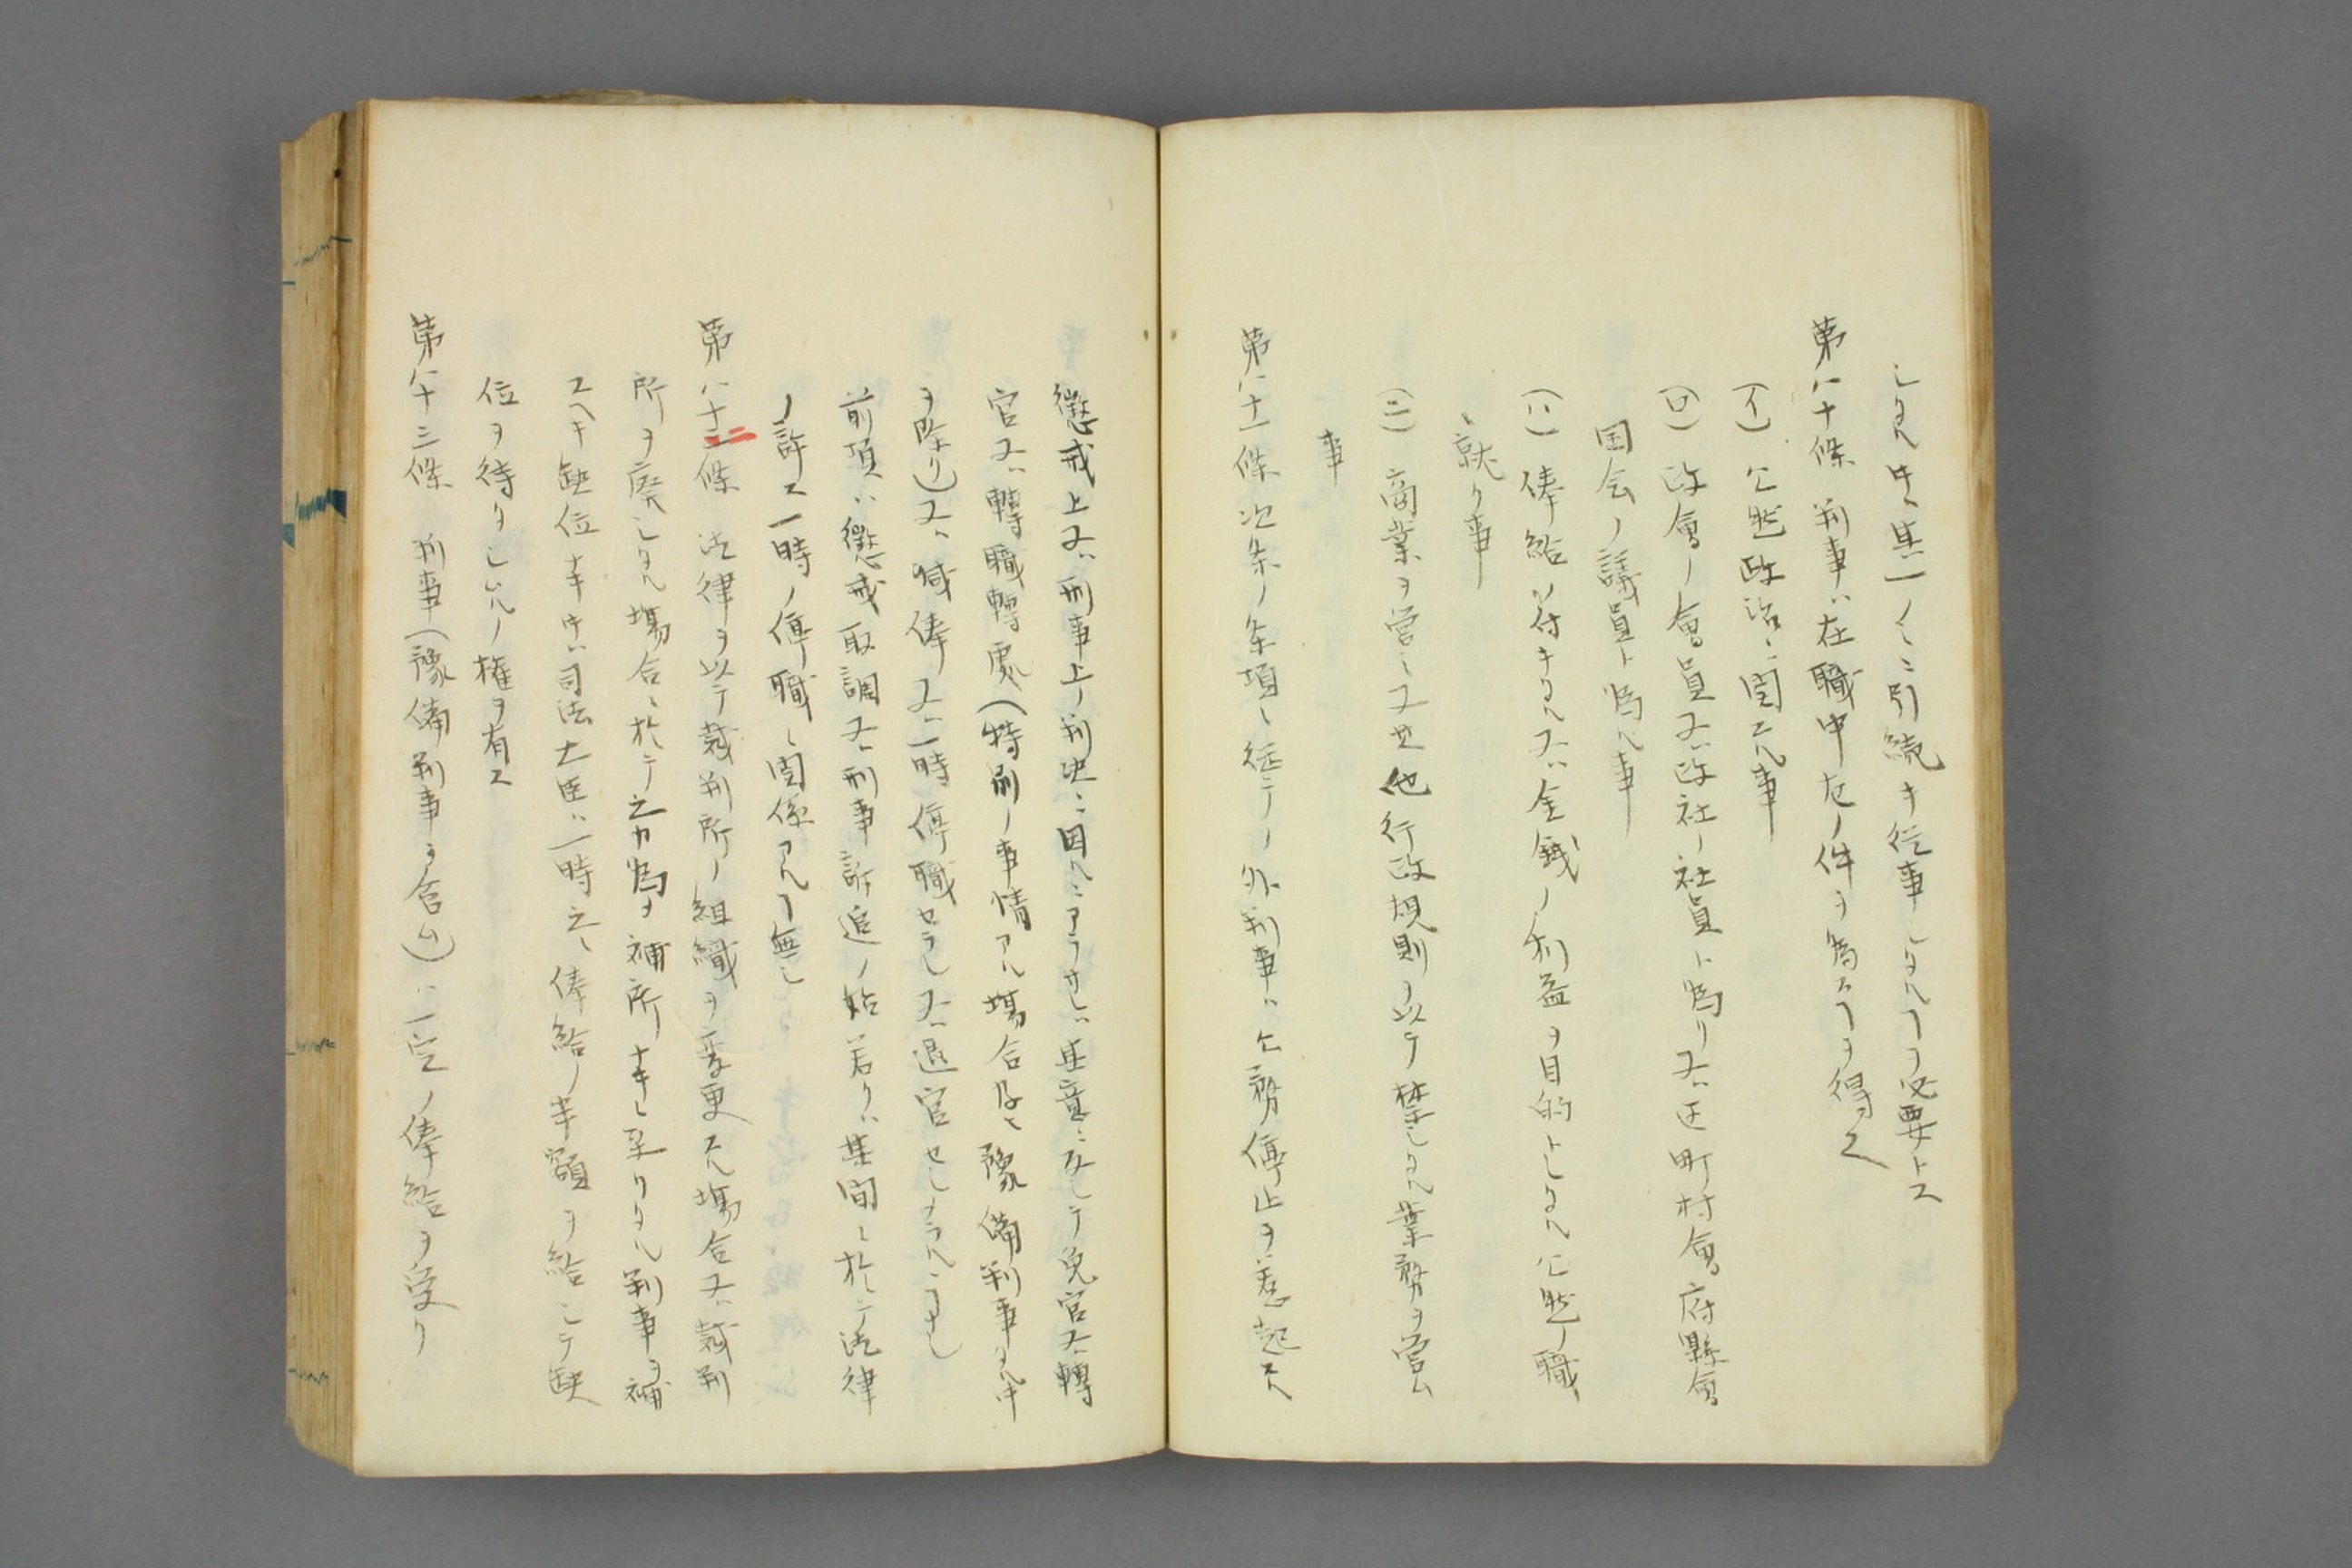 シタル片其一ノミニ引続キ従事シタルヿヲ必要トス
第八十條 判事ハ在職中左ノ件ヲ為スヿヲ得ス
(イ) 公然政治ニ関スル事
(ロ) 政會ノ會員又ハ政社ノ社員ト為リ又ハ区町村會府縣會
国会ノ議員ト為ル事
(ハ) 俸給ノ付キタル又ハ金銭ノ利益ヲ目的トシタル公然ノ職
ニ就ク事
(ニ) 商業ヲ営ミ又其他行政規則ヲ以テ禁シタル業務ヲ営ム
事
第八十一條 次条ノ条項ニ従テノ外判事ハ公務停止ヲ惹起スル
懲戒上又ハ刑事上ノ判决ニ因ルニアラサレハ其意ニ反シテ免官又ハ轉
官又ハ轉職轉處(特別ノ事情アル場合及ヒ豫備判事タル中
ヲ除ク)又ハ减俸又ハ一時停職セラレ又ハ退官セシメラルヿナシ
前項ハ懲戒取調又ハ刑事訴追ノ始若クハ其間ニ於テ法律
ノ許ス一時ノ停職ニ関係アルヿ無シ
第八十二條 法律ヲ以テ裁判所ノ組織ヲ変更スル場合又ハ裁判
所ヲ廃シタル場合ニ於テ之カ為メ補所ナキニ至リタル判事ヲ補
スヘキ缺位ナキ片ハ司法大臣ハ一時之ニ俸給ノ半額ヲ給シテ缺
位ヲ待タシムルノ権ヲ有ス
第八十三條 判事(豫備判事ヲ含ム)ハ一定ノ俸給ヲ受ク